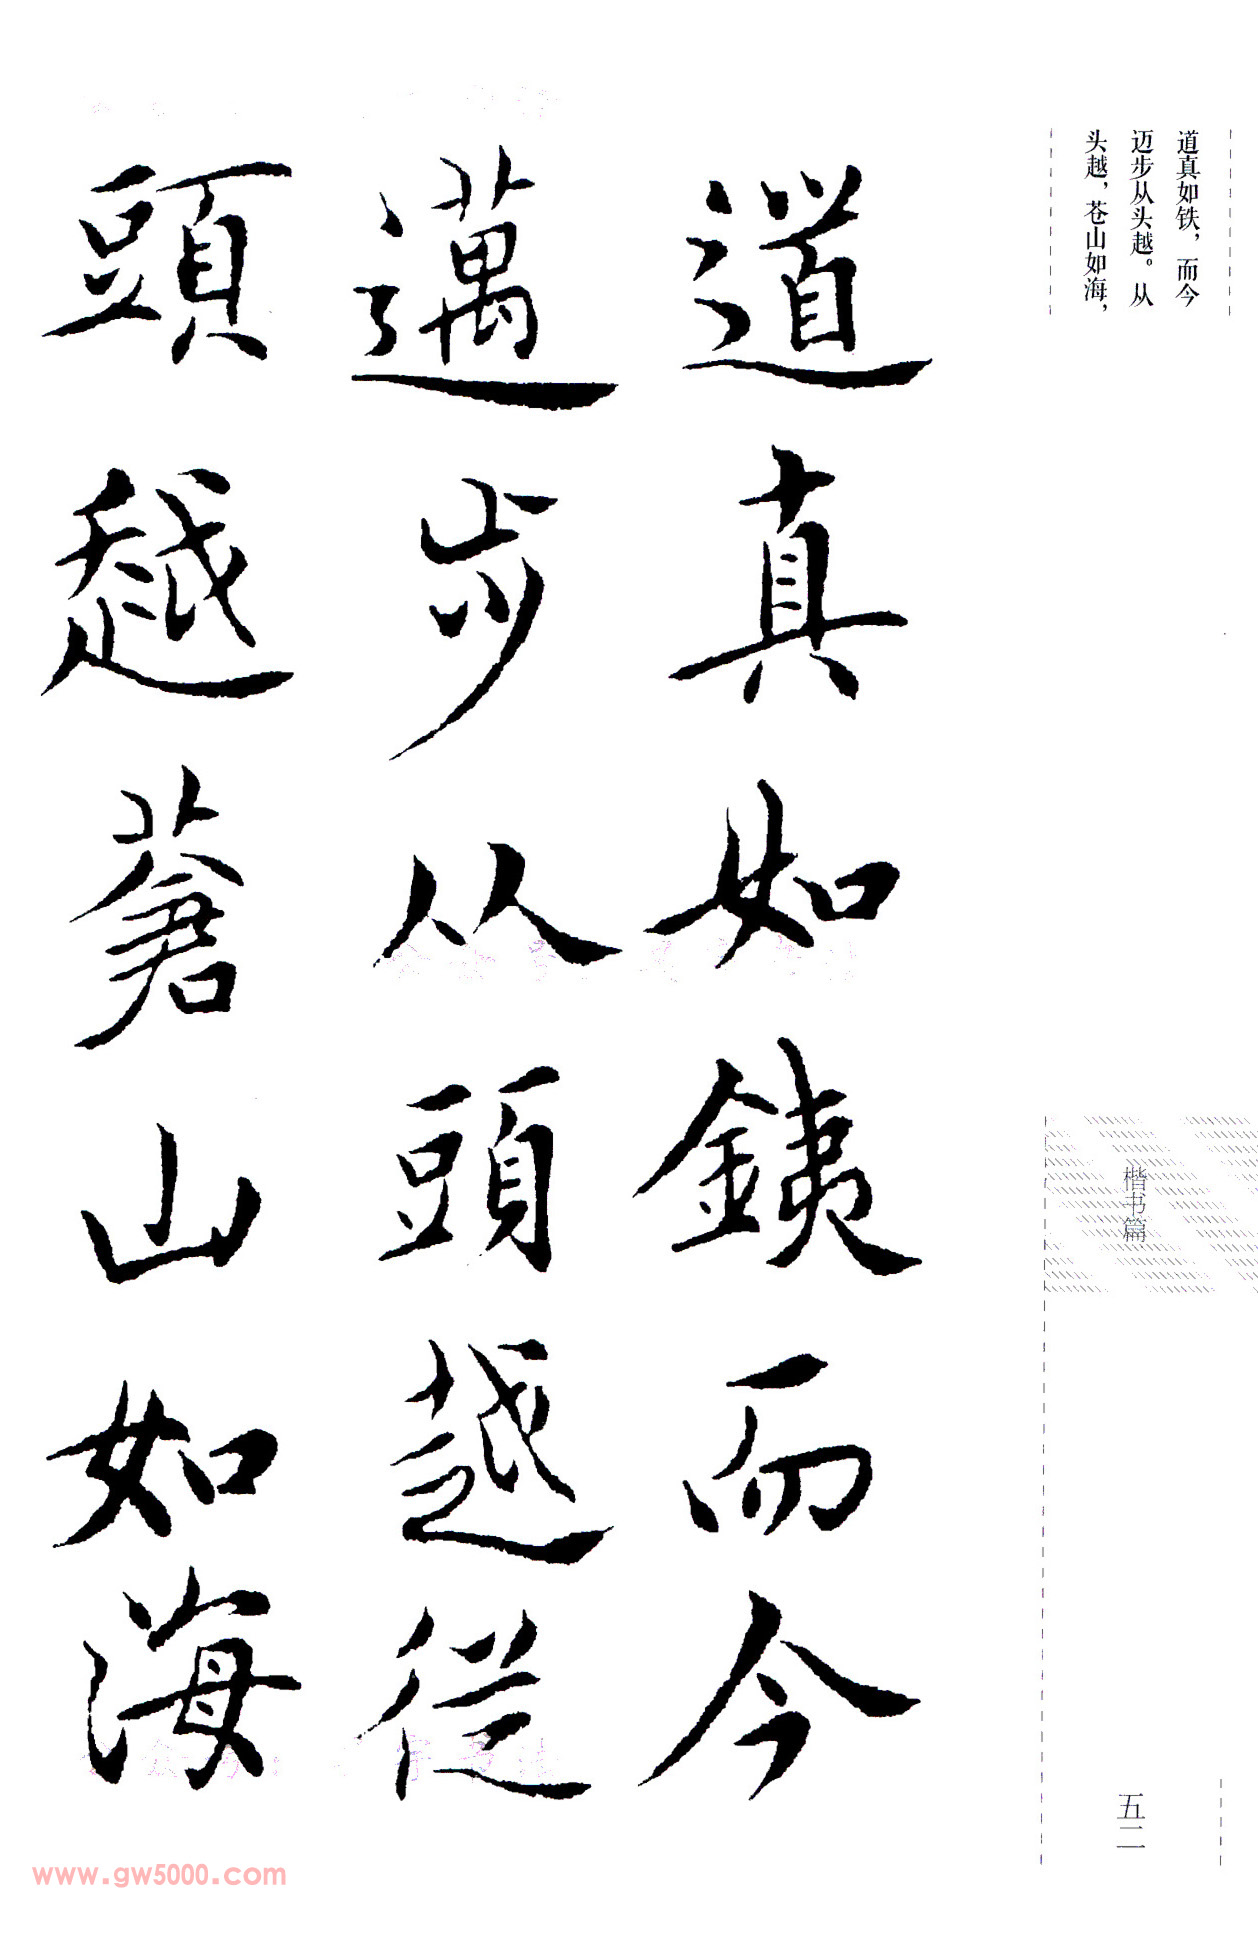 道真如铁，而今
迈步从头越。从
头越，苍山如海，
道真如鐵而今
邁步从頭越從
頭越蒼山如海
楷书篇
五二
www.gw5000.com